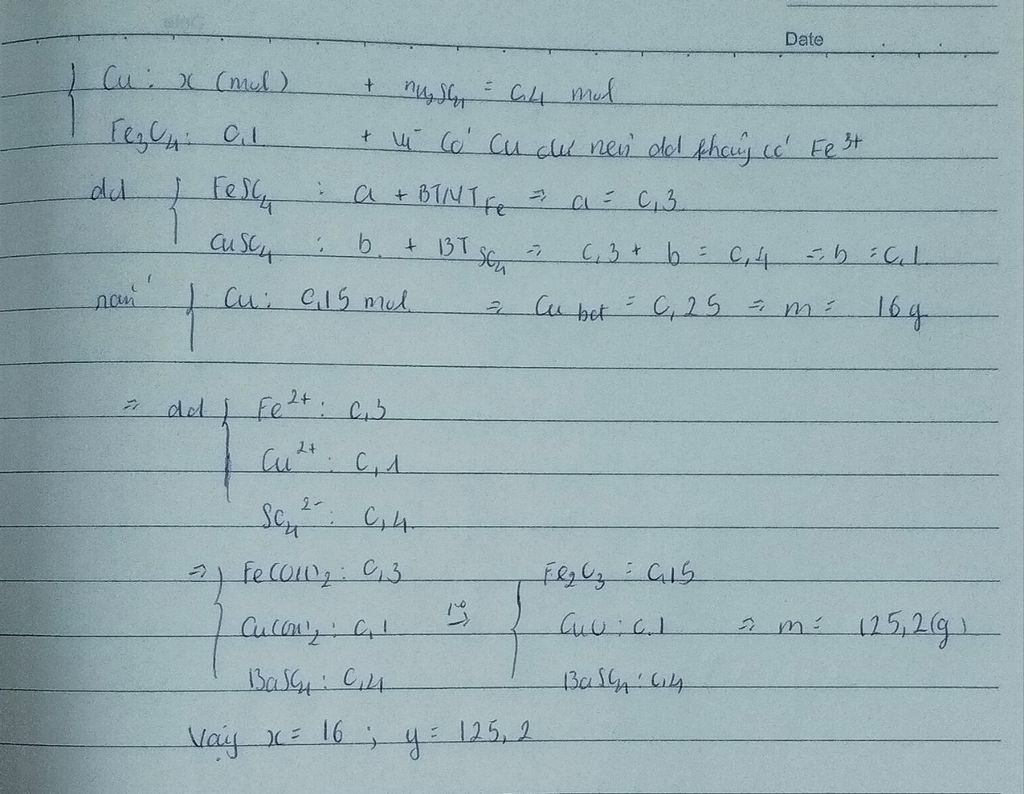 Date
Cu : x (mol) + nH2SO4 = 0,4 mol
Fe3O4 : 0,1 + vì có Cu dư nên dd không có Fe3+
dd FeSO4 : a + BTNT Fe => a = 0,3
CuSO4 : b + BT SO4 => 0,3 + b = 0,4 => b = 0,1
rắn Cu : 0,15 mol => Cu bđ = 0,25 => m = 16 g
=> dd Fe2+ : 0,3
Cu2+ : 0,1
SO4 2- : 0,4
=> Fe(OH)2 : 0,3 Fe2O3 = 0,15
Cu(OH)2 : 0,1 t° => CuO : 0,1 => m = 125,2 (g)
BaSO4 : 0,4 BaSO4 : 0,4
Vậy x = 16 ; y = 125,2